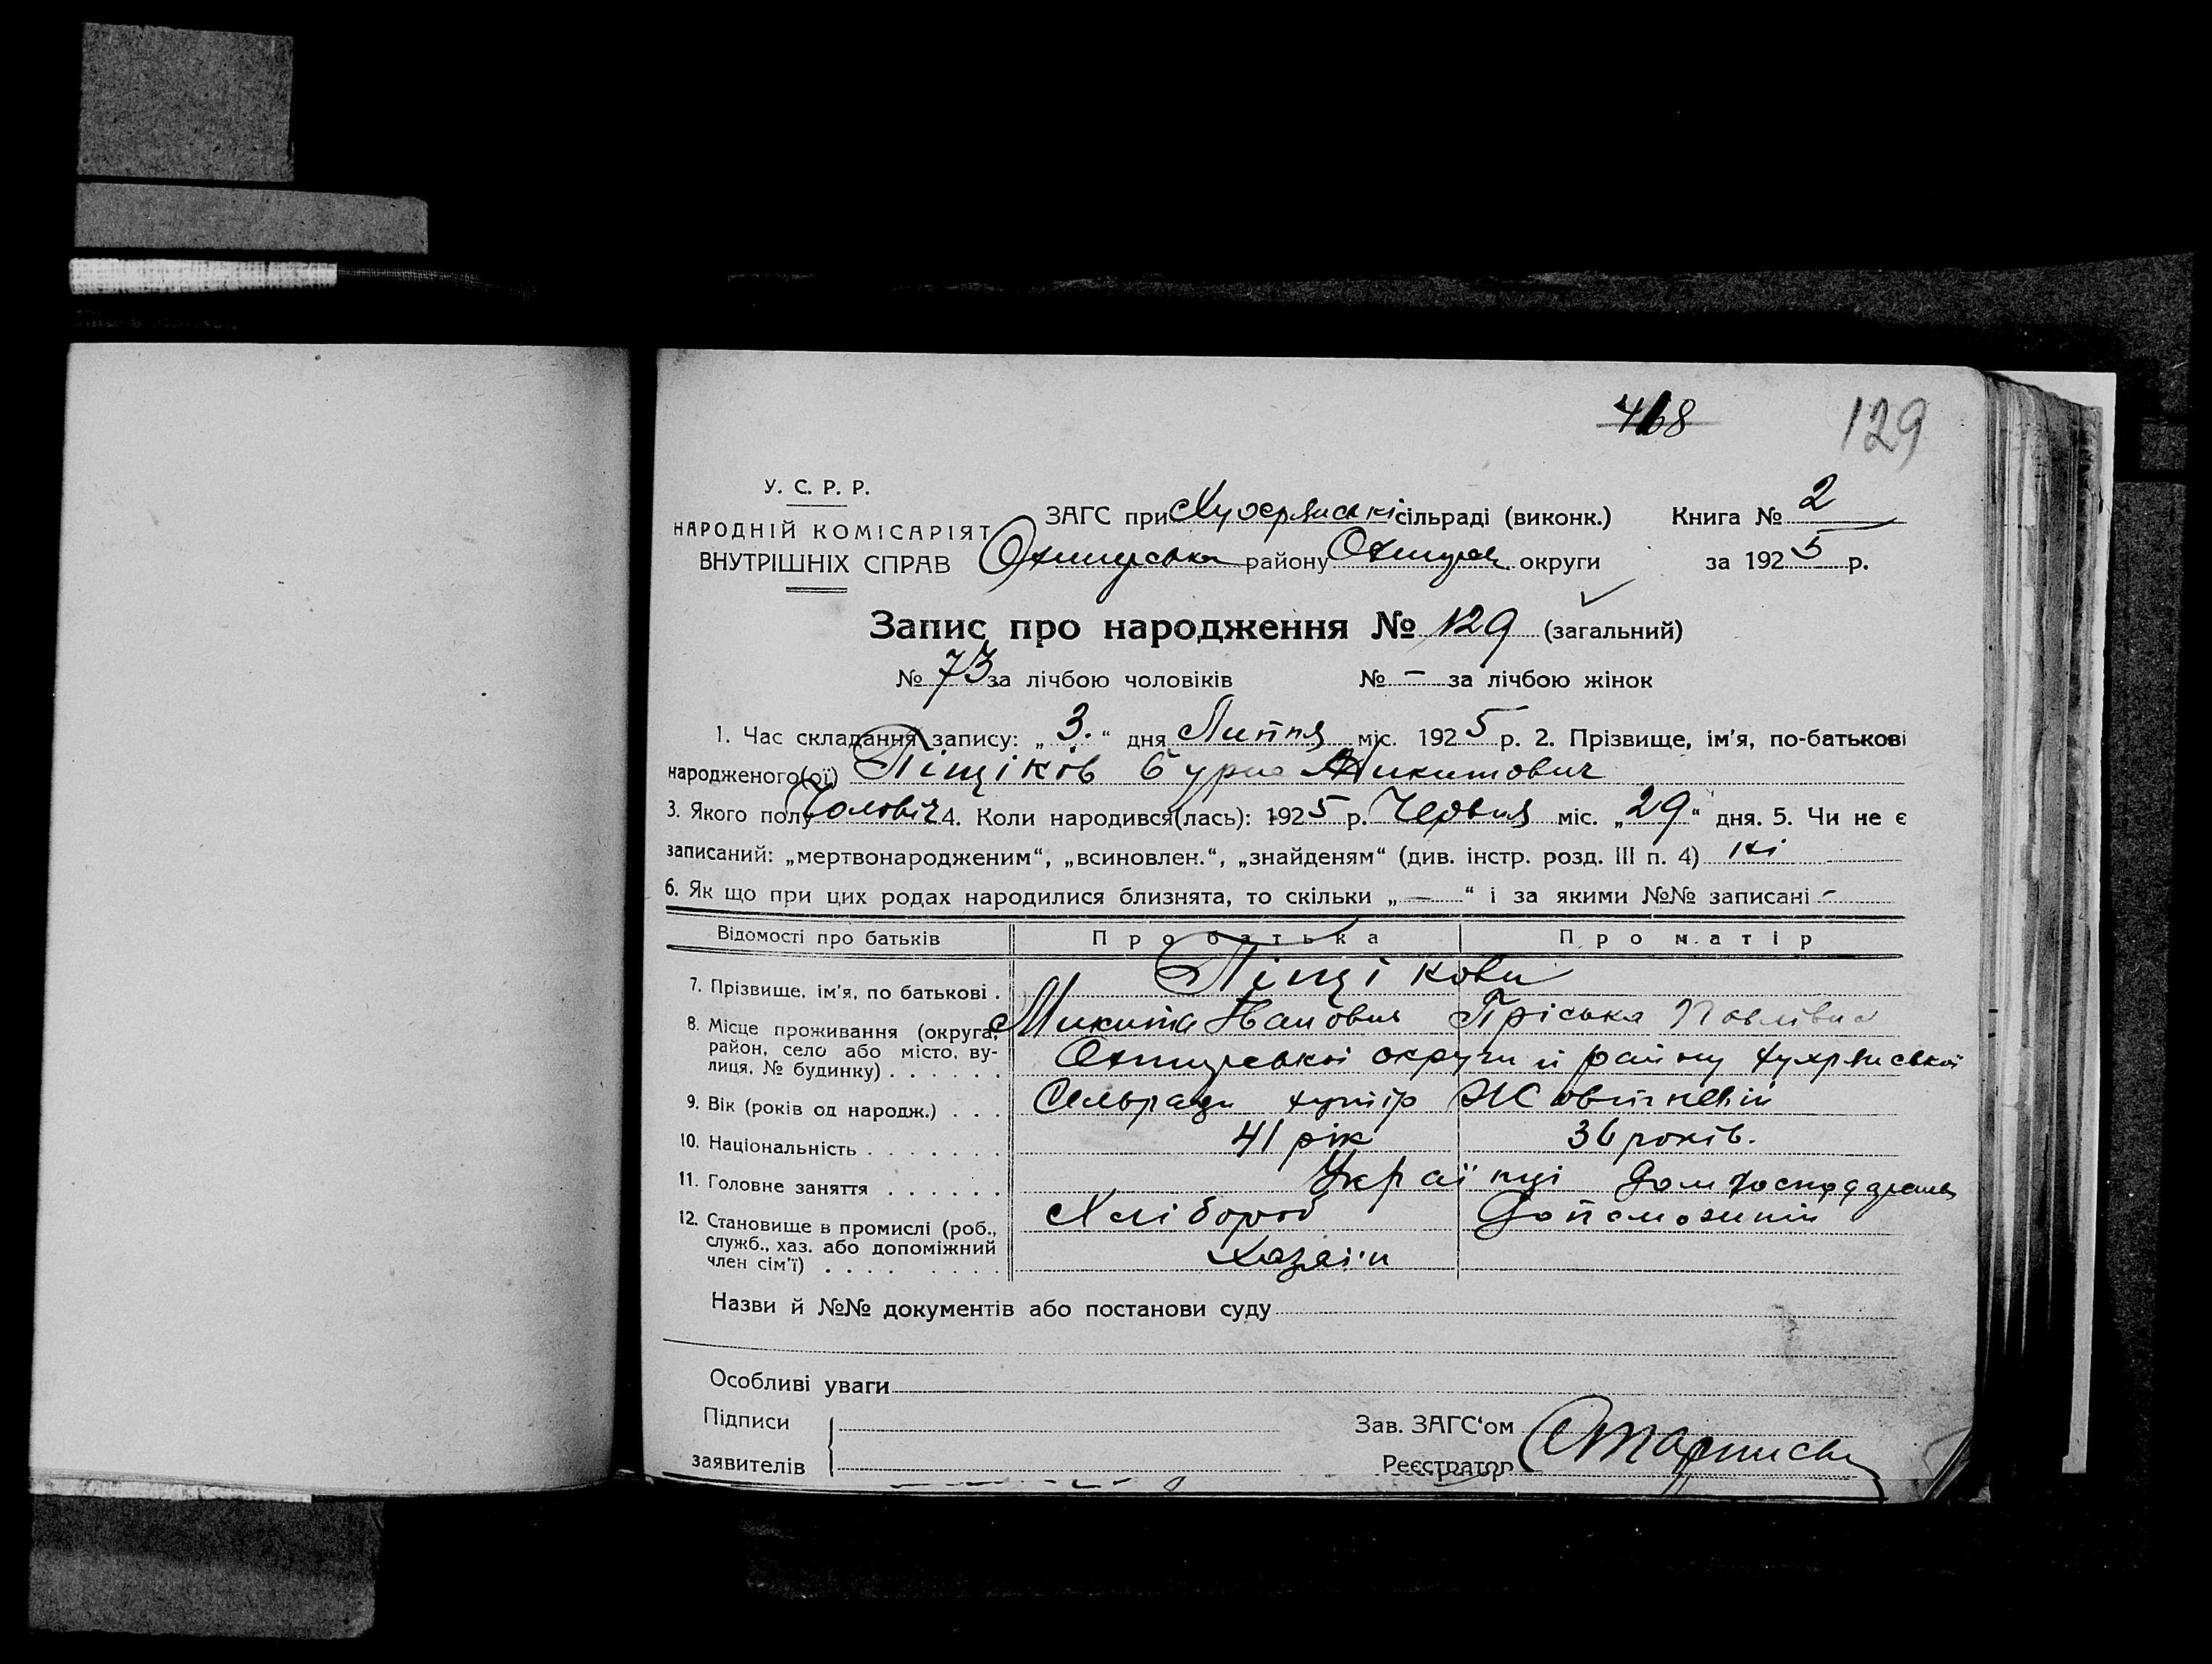 468 129
У. С. Р. Р.
НАРОДНІЙ КОМІСАРІЯТ
ВНУТРІШНІХ СПРАВ
ЗАГС при сільраді (виконк.) Книга № 2
району округи за 1925 р.
Запис про народження № 129 (загальний)
№ 73 за лічбою чоловіків № – за лічбою жінок
1. Час складання запису: „3.“ дня Липня міс. 1925 р. 2. Прізвище, ім'я, по-батькові
народженого(ої) Піщіків Микитович
3. Якого полу Чоловіч 4. Коли народився(лась): 1925 р. Червня міс. „29“ дня. 5. Чи не є
записаний: „мертвонародженим“, „всиновлен.“, „знайденям“ (див. інстр. розд. III п. 4) ні
6. Як що при цих родах народилися близнята, то скільки „—“ і за якими №№ записані -
Відомості про батьків Про батька Про матір
7. Прізвище, ім'я, по батькові . Піщікови
Микита Павлівна
8. Місце проживання (округа, район, село або місто, вулиця, № будинку) . . . . . . Охтирської округи й району
9. Вік (років од народж.) . . . хутір
10. Національність . . . . . . . 41 рік 36 років.
11. Головне заняття . . . . . . Українці
12. Становище в промислі (роб., служб., хаз. або допоміжний член сім'ї) . . . . . . . . Хлібороб
Хазяїн
Назви й №№ документів або постанови суду
Особливі уваги
Підписи
заявителів
Зав. ЗАГС'ом
Реєстратор